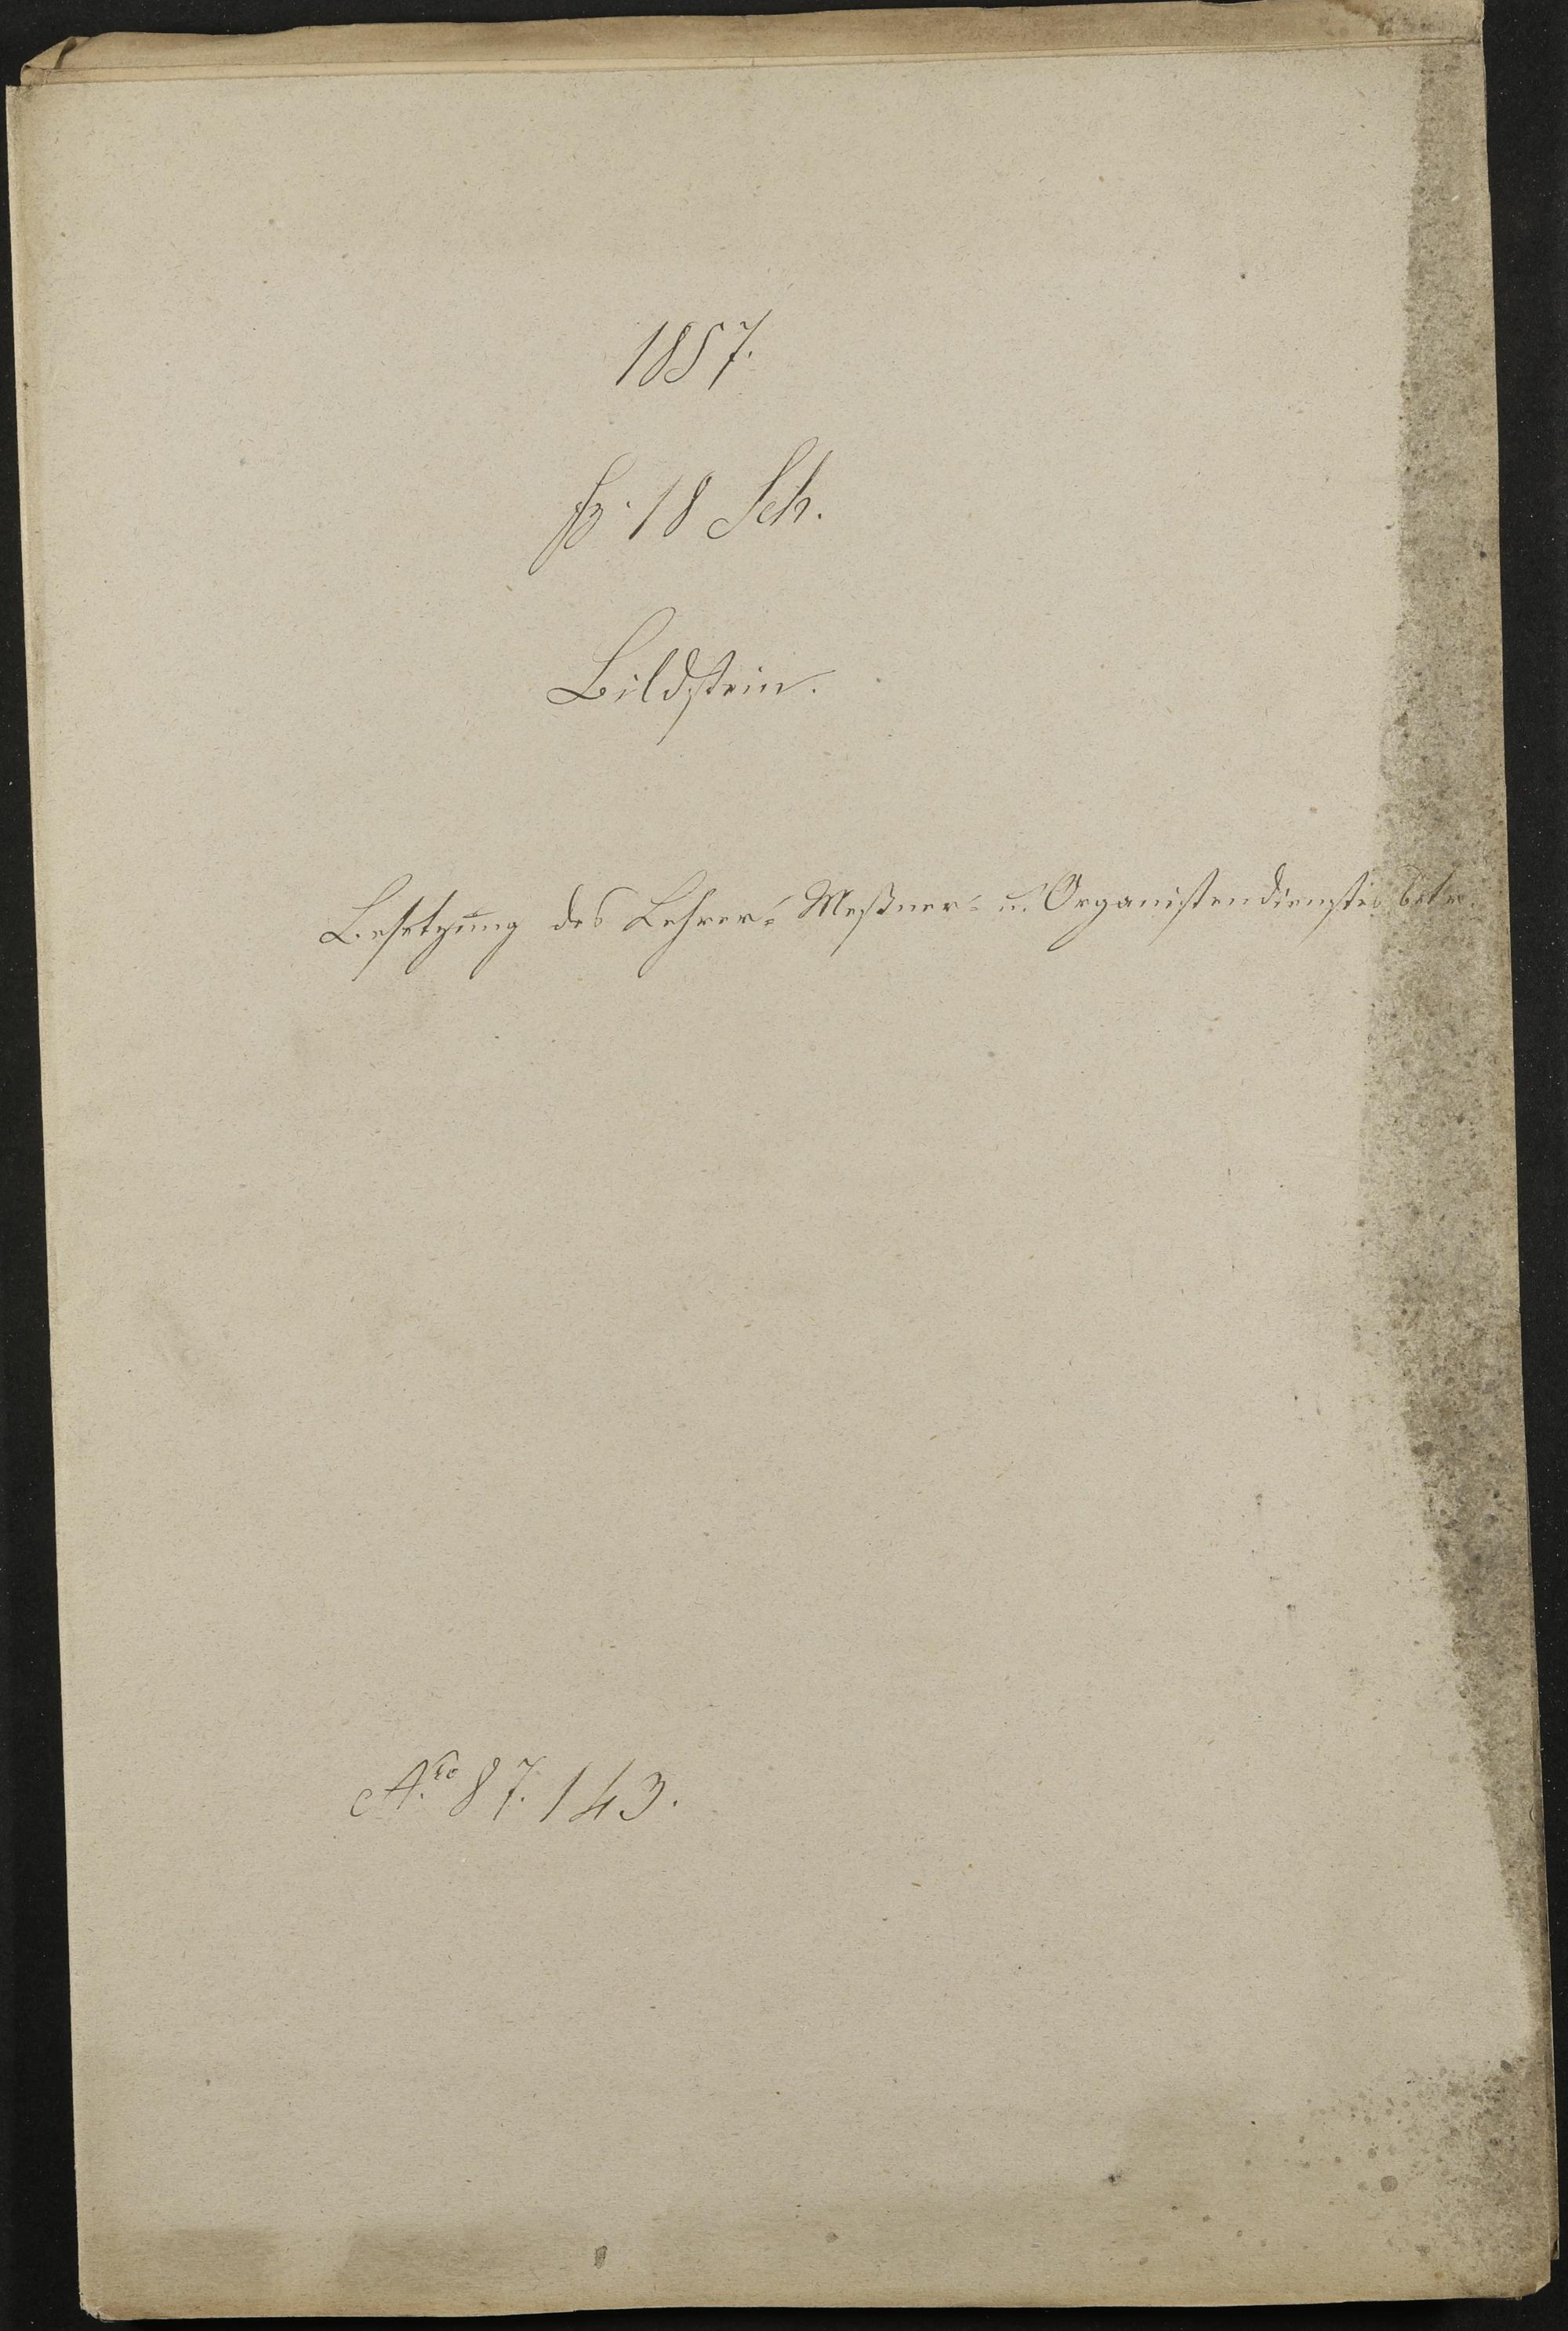 1857.
fz. 18 Sch.
Bildstein.
Besetzung des Lehrer- Meßner- u. Organistendienstes betr.
Nro 87. 143.